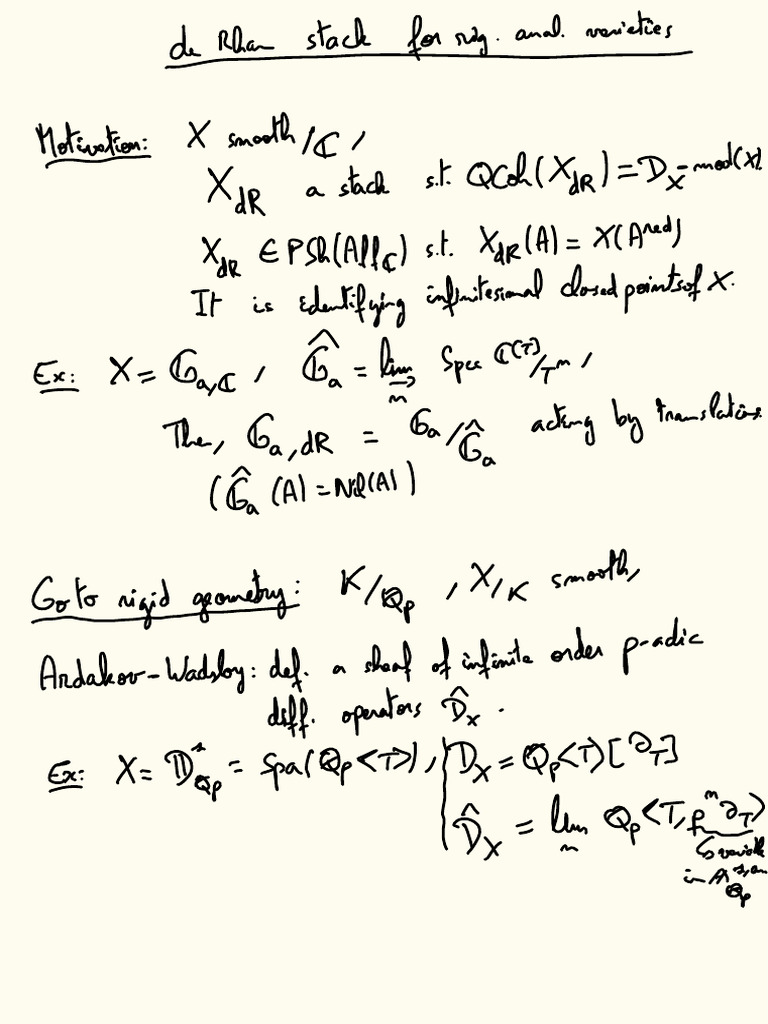 de Rham stack for rig. anal. varieties
Motivation: X smooth/ℂ,
X_dR a stack s.t. QCoh(X_dR) = D_X-mod(X)
X_dR ∈ PSh(Aff_ℂ) s.t. X_dR(A) = X(A^red)
It is identifying infinitesimal closed points of X.
Ex: X = 𝔾_{a,ℂ}, \hat{𝔾}_a = \varinjlim_n Spec ℂ[T]/T^n,
Then, 𝔾_{a,dR} = 𝔾_a/\hat{𝔾}_a acting by translation.
(\hat{𝔾}_a(A) = Nil(A))
Go to rigid geometry: K/ℚ_p, X/K smooth,
Ardakov-Wadsley: def. a sheaf of infinite order p-adic
diff. operators \hat{D}_X.
Ex: X = 𝔻^1_{ℚ_p} = Spa(ℚ_p<T>), D_X = ℚ_p<T>[∂_T]
\hat{D}_X = \lim_n ℚ_p<T, p^n ∂_T>
↳ variable
in 𝔸^{1,an}_{ℚ_p}